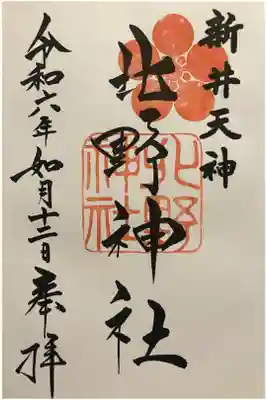 新井天神
北野神社
北野
神社
令和六年如月十二日奉拝